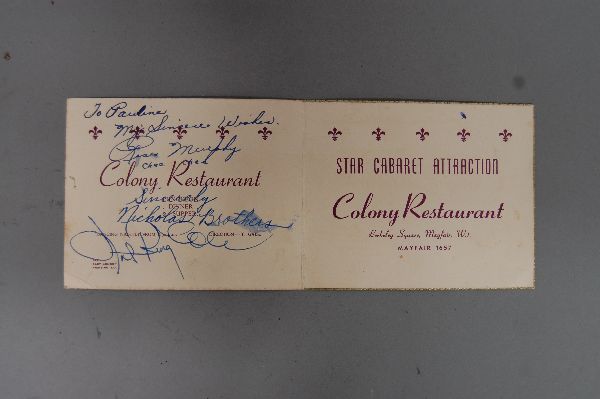 To Pauline
My Sincere Wishes.
Rose Murphy
Chee Chee
Colony Restaurant
Sincerely
DINNER
Nicholas Brothers
SUPPER
Nat King Cole
STAR CABARET ATTRACTION
Colony Restaurant
Berkeley Square, Mayfair, W.1.
MAYFAIR 1657